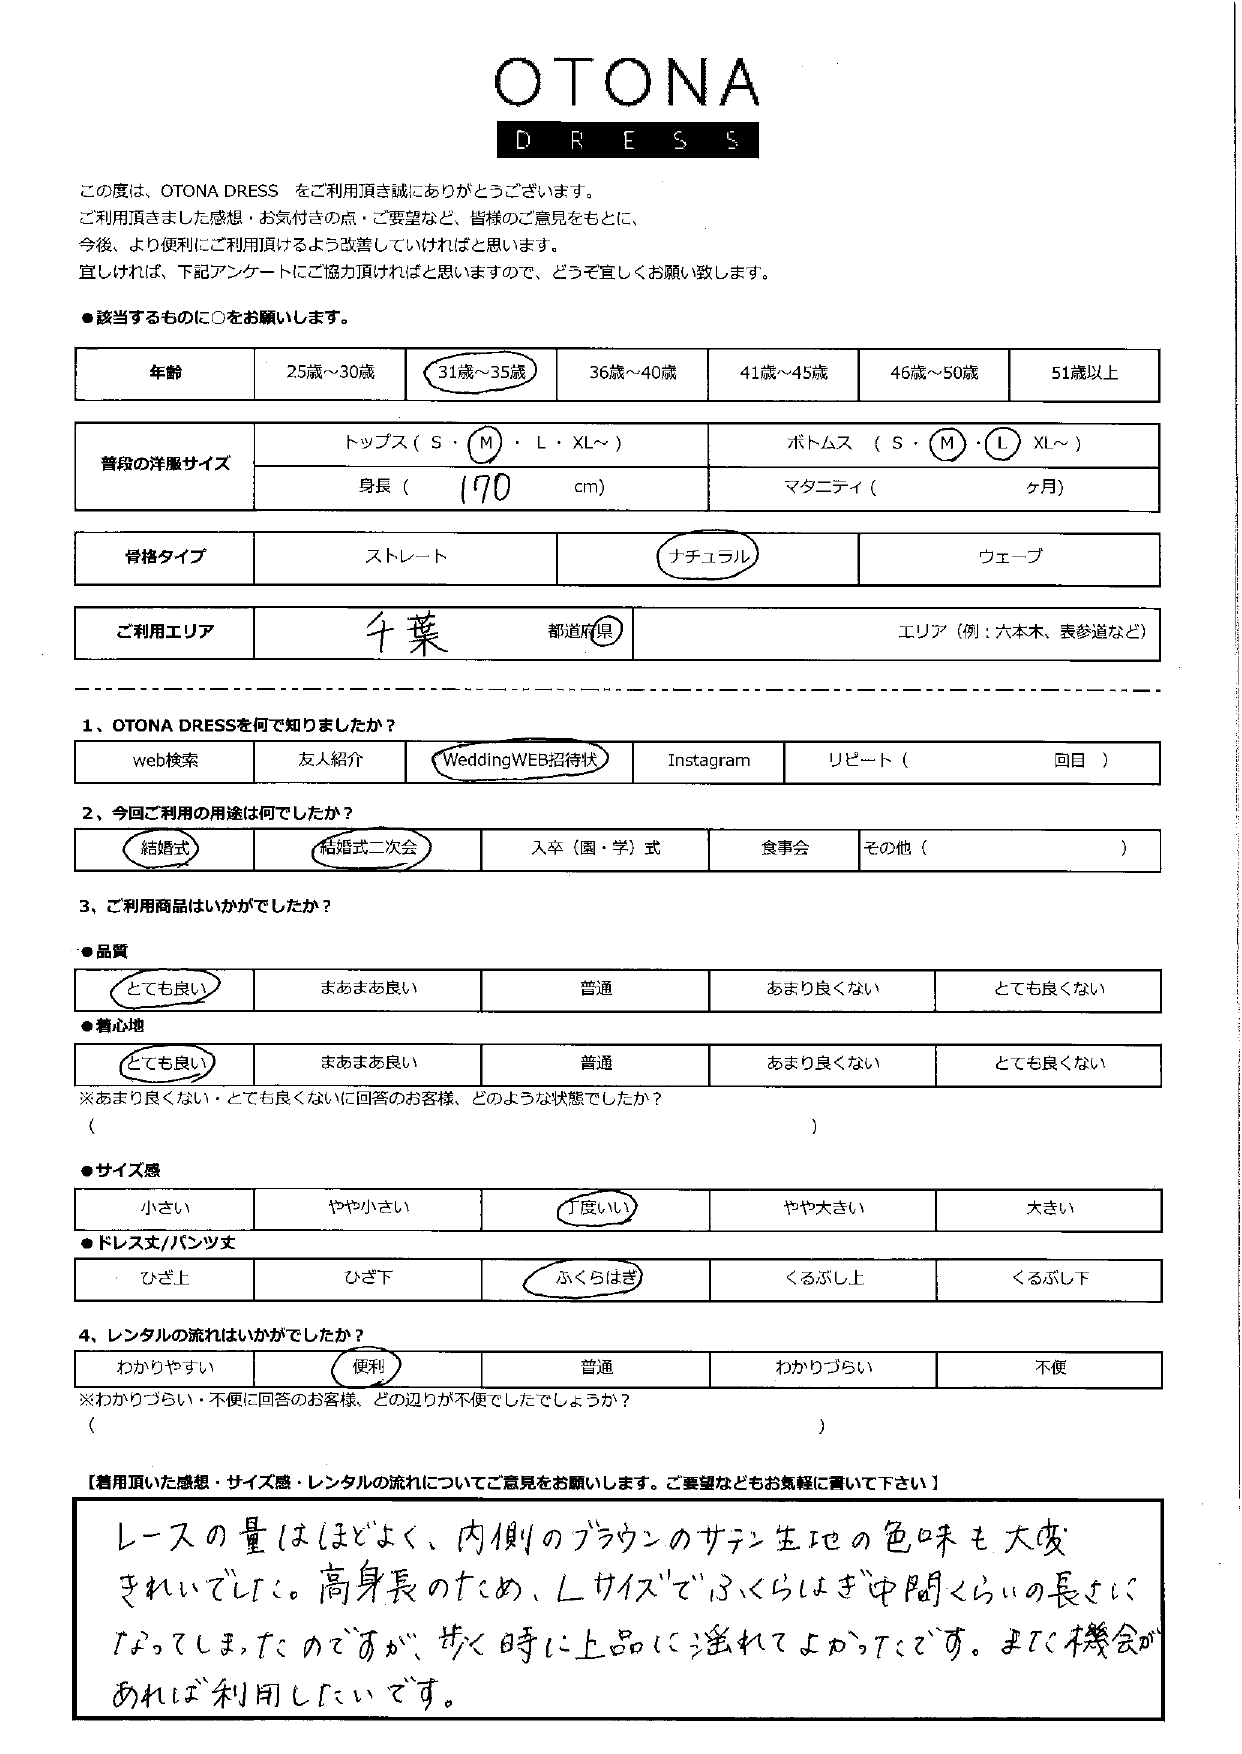 OTONA
DRESS
この度は、OTONA DRESS　をご利用頂き誠にありがとうございます。
ご利用頂きました感想・お気付きの点・ご要望など、皆様のご意見をもとに、
今後、より便利にご利用頂けるよう改善していければと思います。
宜しければ、下記アンケートにご協力頂ければと思いますので、どうぞ宜しくお願い致します。
●該当するものに○をお願いします。
年齢 25歳～30歳 31歳～35歳 36歳～40歳 41歳～45歳 46歳～50歳 51歳以上
普段の洋服サイズ トップス ( S ・ M ・ L ・ XL～ ) ボトムス ( S ・ M ・ L XL～ )
身長 ( 170 cm) マタニティ ( ヶ月)
骨格タイプ ストレート ナチュラル ウェーブ
ご利用エリア 千葉 都道府県 エリア（例：六本木、表参道など）
1、OTONA DRESSを何で知りましたか？
web検索 友人紹介 WeddingWEB招待状 Instagram リピート ( 回目 )
2、今回ご利用の用途は何でしたか？
結婚式 結婚式二次会 入卒（園・学）式 食事会 その他 ( )
3、ご利用商品はいかがでしたか？
●品質
とても良い まあまあ良い 普通 あまり良くない とても良くない
●着心地
とても良い まあまあ良い 普通 あまり良くない とても良くない
※あまり良くない・とても良くないに回答のお客様、どのような状態でしたか？
( )
●サイズ感
小さい やや小さい 丁度いい やや大きい 大きい
●ドレス丈/パンツ丈
ひざ上 ひざ下 ふくらはぎ くるぶし上 くるぶし下
4、レンタルの流れはいかがでしたか？
わかりやすい 便利 普通 わかりづらい 不便
※わかりづらい・不便に回答のお客様、どの辺りが不便でしたでしょうか？
( )
【着用頂いた感想・サイズ感・レンタルの流れについてご意見をお願いします。ご要望などもお気軽に書いて下さい】
レースの量はほどよく、内側のブラウンのサテン生地の色味も大変
きれいでした。高身長のため、Lサイズでふくらはぎ中間くらいの長さに
なってしまったのですが、歩く時に上品に揺れてよかったです。また機会が
あれば利用したいです。